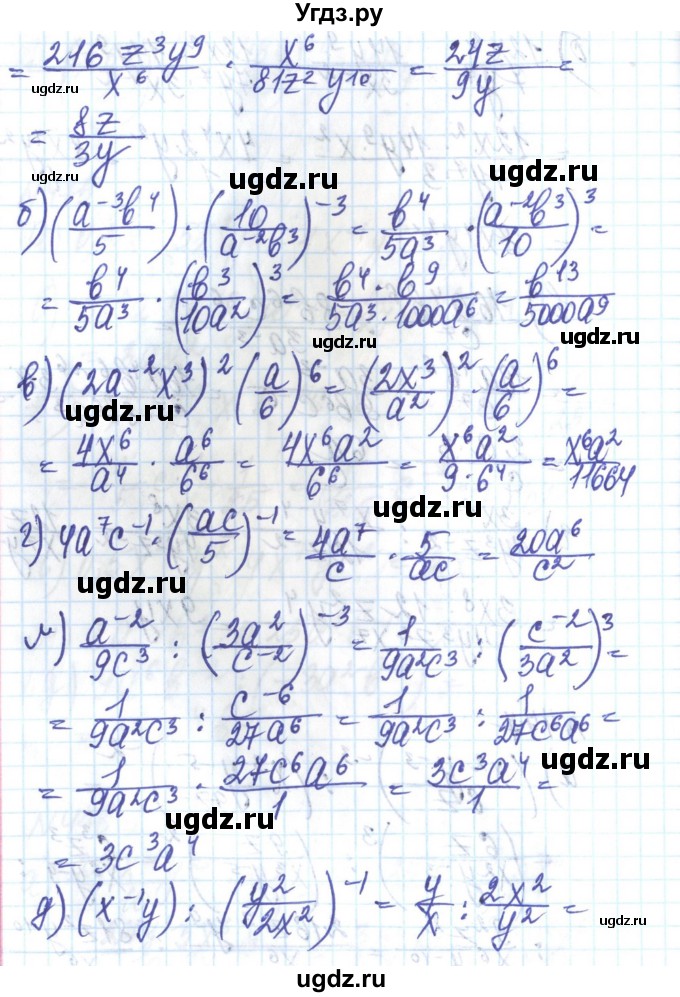 Угдз.ру
= 216 z³y⁹/x⁶ · x⁶/81z²y¹⁰ = 24z/9y =
ugdz.ru
ugdz.ru
= 8z/3y
ugdz.ru
б) (a⁻³b⁴/5) · (10/a⁻²b³)⁻³ = b⁴/5a³ · (a⁻²b³/10)³ =
ugdz.ru
= b⁴/5a³ · (b³/10a²)³ = b⁴ · b⁹/5a³ · 1000a⁶ = b¹³/5000a⁹
ugdz.ru
в) (2a⁻²x³)² (a/6)⁶ = (2x³/a²)² · (a/6)⁶ =
ugdz.ru
= 4x⁶/a⁴ · a⁶/6⁶ = 4x⁶a²/6⁶ = x⁶a²/9 · 6⁴ = x⁶a²/11664
ugdz.ru
г) 4a⁷c⁻¹ · (ac/5)⁻¹ = 4a⁷/c · 5/ac = 20a⁶/c²
ugdz.ru
м) a⁻²/9c³ : (3a²/c⁻²)⁻³ = 1/9a²c³ : (c⁻²/3a²)³ =
ugdz.ru
= 1/9a²c³ : c⁻⁶/27a⁶ = 1/9a²c³ : 1/27c⁶a⁶ =
ugdz.ru
= 1/9a²c³ · 27c⁶a⁶/1 = 3c³a⁴/1 =
ugdz.ru
= 3c³a⁴
д) (x⁻¹y) : (y²/2x²)⁻¹ = y/x : 2x²/y² =
ugdz.ru
ugdz.ru
ugdz.ru